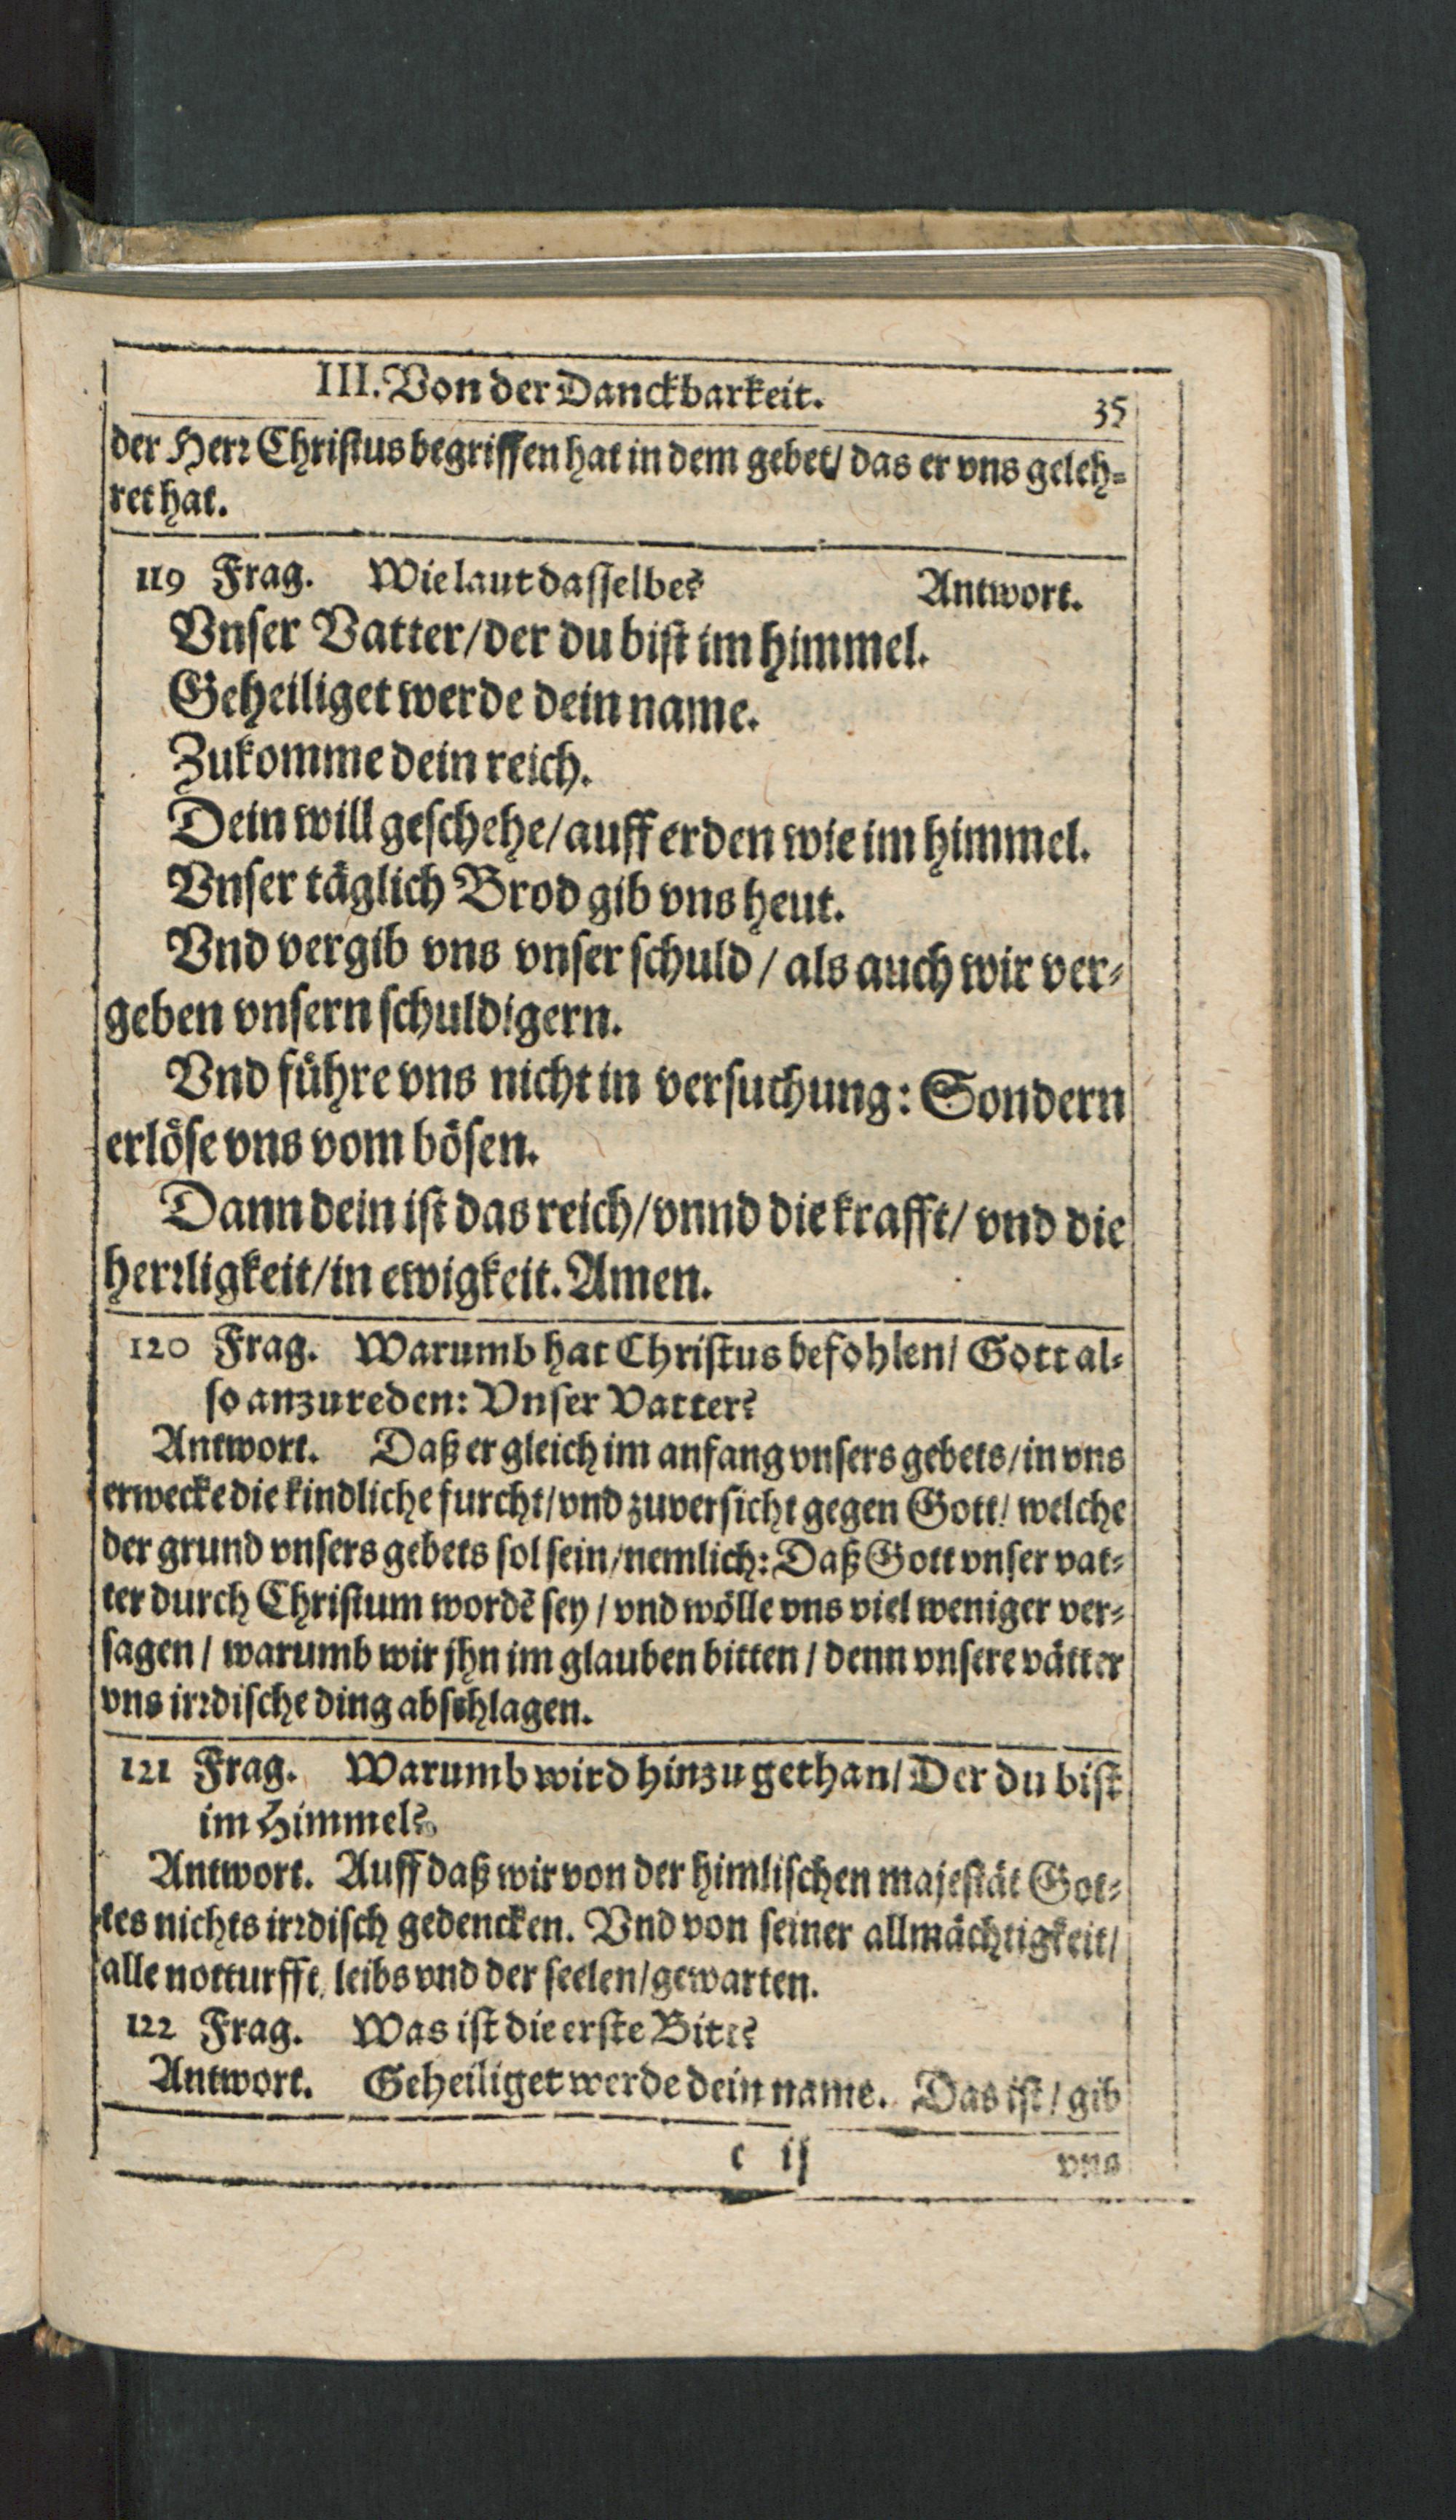 III. Von der Danckbarkeit.
35
der Herꝛ Christus begriffen hat in dem gebet / das er vns geleh-
ret hat.
119 Frag. Wie laut dasselbe? Antwort.
Vnser Vatter / der du bist im himmel.
Geheiliget werde dein name.
Zukomme dein reich.
Dein will geschehe / auff erden wie im himmel.
Vnser täglich Brod gib vns heut.
Vnd vergib vns vnser schuld / als auch wir ver-
geben vnsern schuldigern.
Vnd führe vns nicht in versuchung: Sondern
erlöse vns vom bösen.
Dann dein ist das reich / vnnd die krafft / vnd die
herꝛligkeit / in ewigkeit. Amen.
120 Frag. Warumb hat Christus befohlen / Gott al-
so anzureden: Vnser Vatter?
Antwort. Daß er gleich im anfang vnsers gebets / in vns
erwecke die kindliche furcht / vnd zuversicht gegen Gott / welche
der grund vnsers gebets sol sein / nemlich: Daß Gott vnser vat-
ter durch Christum wordẽ sey / vnd wölle vns viel weniger ver-
sagen / warumb wir jhn im glauben bitten / denn vnsere vätter
vns irꝛdische ding abschlagen.
121 Frag. Warumb wird hinzu gethan / Der du bist
im Himmel?
Antwort. Auff daß wir von der himlischen majestät Got-
tes nichts irꝛdisch gedencken. Vnd von seiner allmächtigkeit /
alle notturfft leibs vnd der seelen / gewarten.
122 Frag. Was ist die erste Bitt?
Antwort. Geheiliget werde dein name. Das ist / gib
c ij
vns